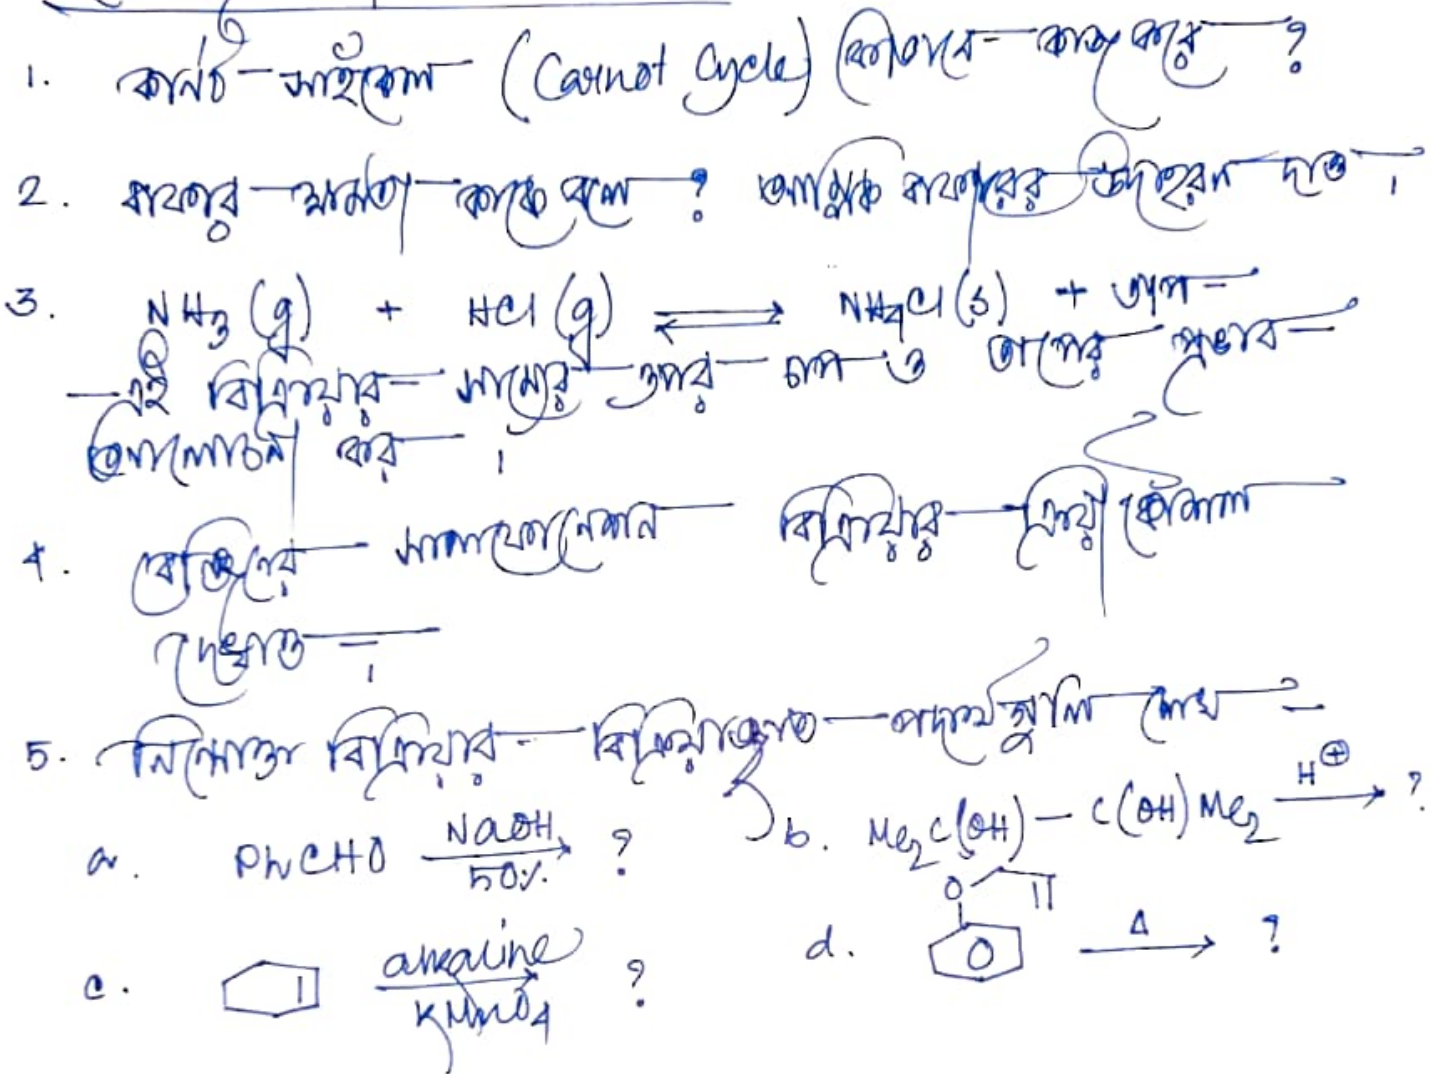 1. কার্নট সাইকেল (Carnot Cycle) কিভাবে কাজ করে ?
2. বাফার ক্ষমতা কাকে বলে ? আম্লিক বাফারের উদাহরণ দাও ।
3. NH3 (g) + HCl (g) ⇌ NH4Cl (s) + তাপ
এই বিক্রিয়ার সাম্যের ওপর চাপ ও তাপের প্রভাব
আলোচনা কর ।
4. বেঞ্জিনের সালফোনেশান বিক্রিয়ার ক্রিয়া কৌশল
দেখাও ।
5. নিম্নোক্ত বিক্রিয়ার বিক্রিয়াজাত পদার্থগুলি লেখ –
a. PhCHO NaOH, 50% → ? b. Me2C(OH) – C(OH)Me2 H⊕ → ?
c. alkaline KMnO4 → ? d. O Δ → ?